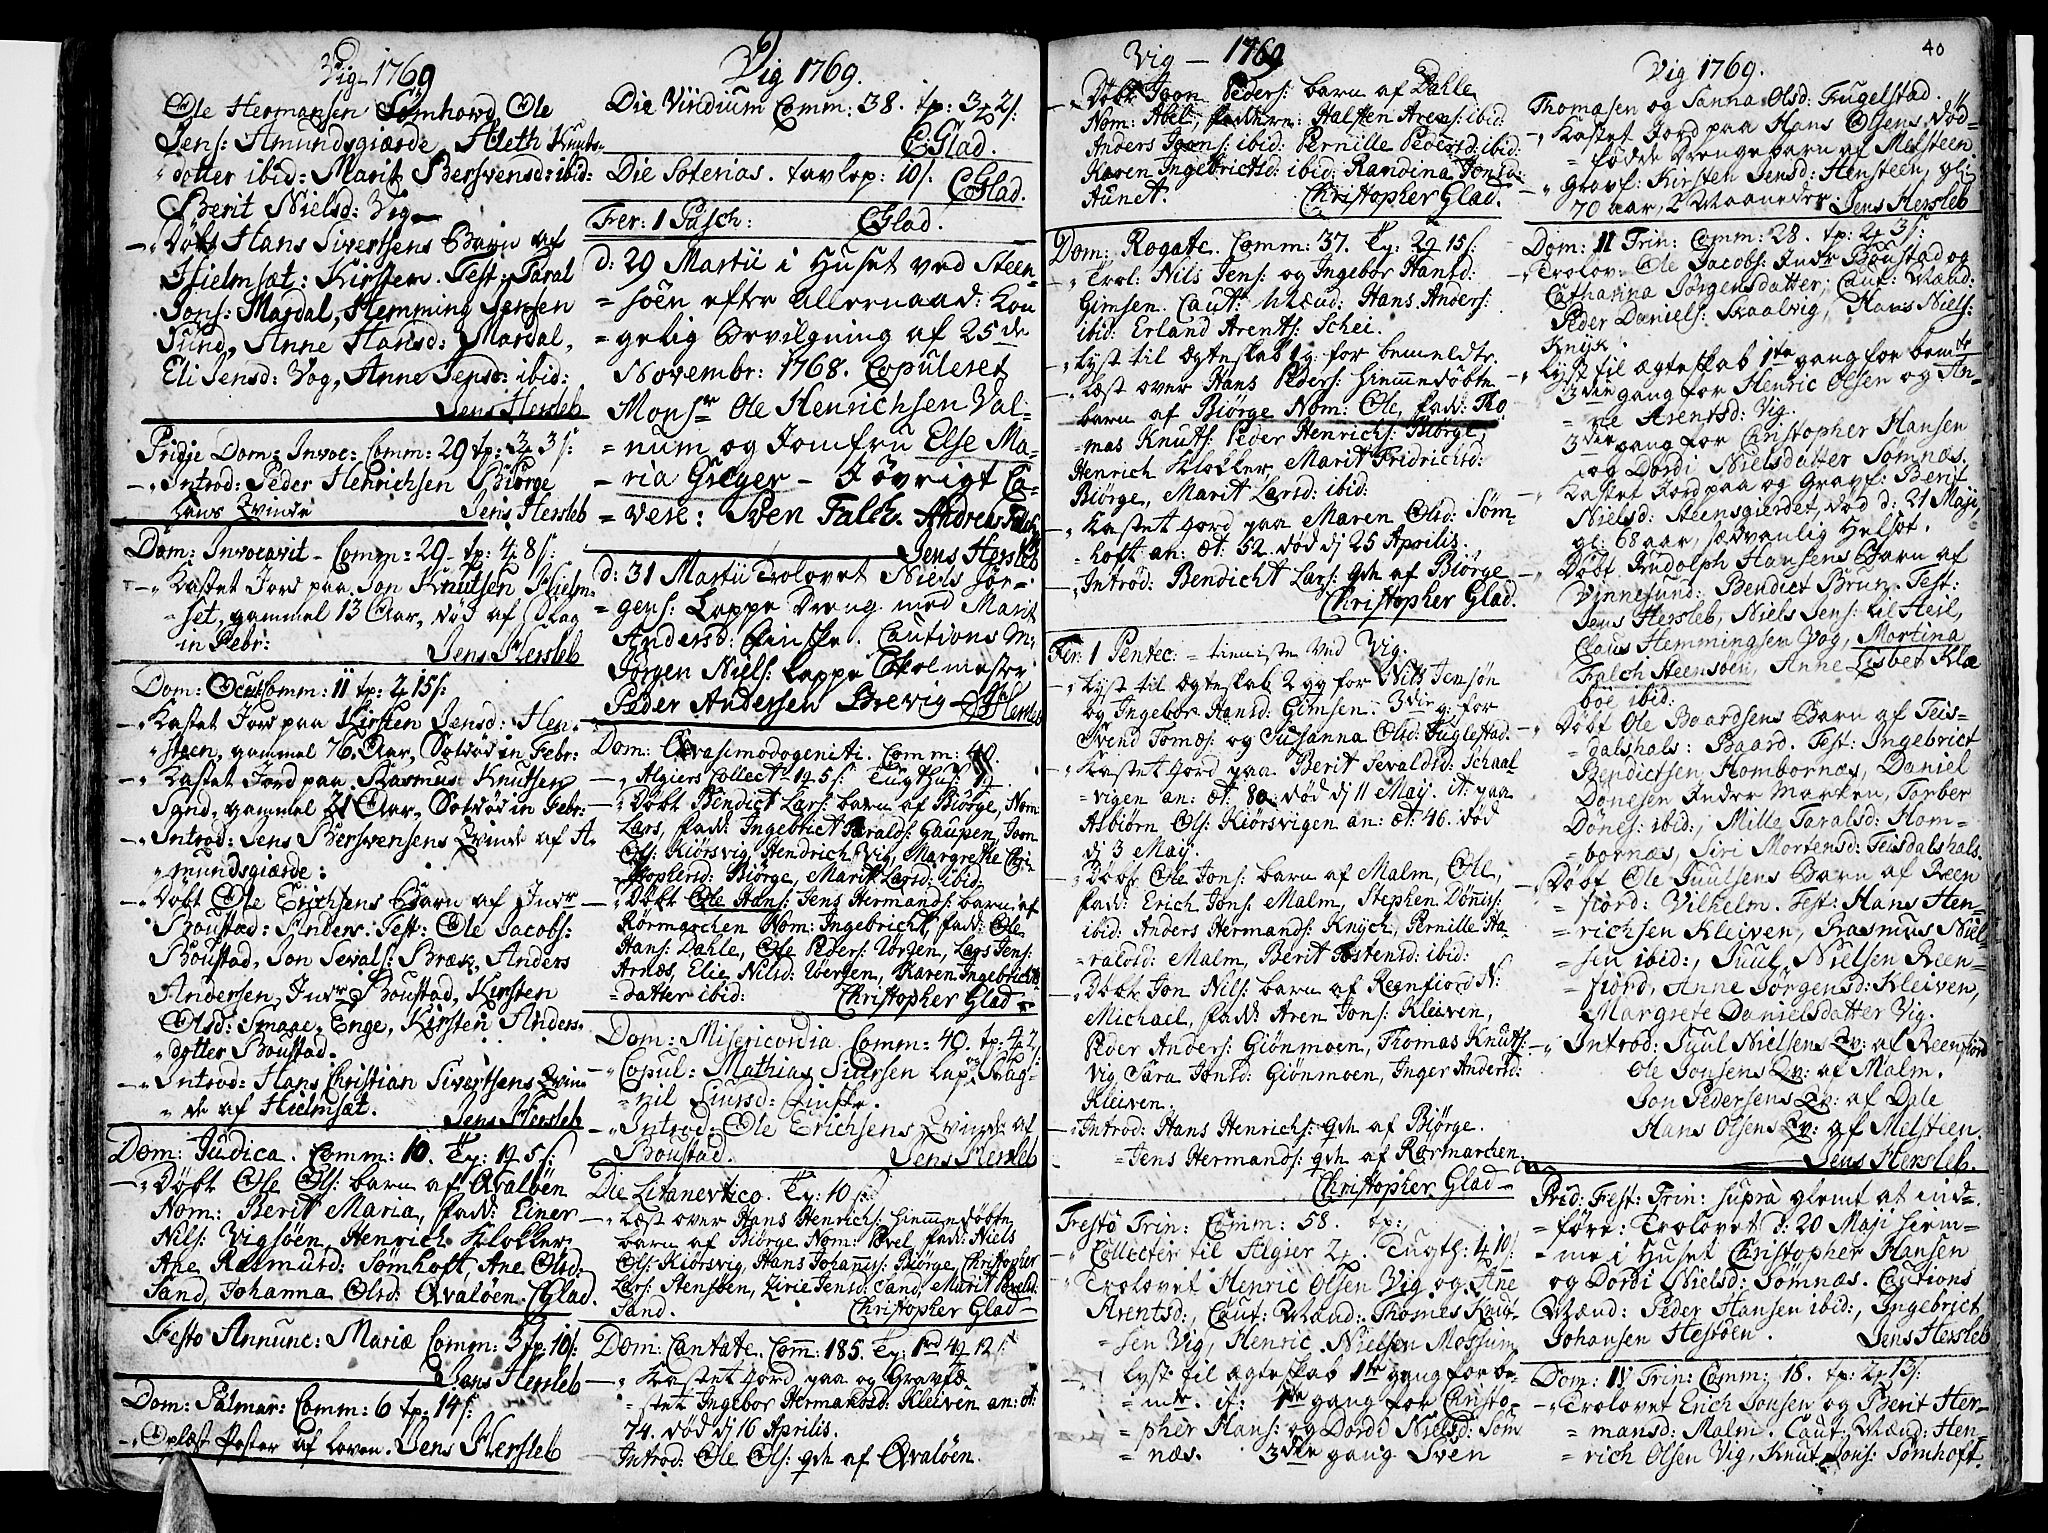 Vig 1769
Ole Hermansen Sømhovd, Ole
Jens: Amundsgiærde, Aleth Knuts-
dotter ibid: Marit Bersvensd: ibid:
Berit Nielsd: Vig
Døbt Hans Sivertsens Barn af
Hielmsæt: Kirsten. Test: Taral
Jons: Mardal, Hemming Jensen
Sund, Anne Hansd: Mardal,
Eli Jensd: Vog, Anne Jensd: ibid:
Jens Hersleb
Pridje Dom: Invoc: Comm: 29 tp: 3 3/:
Introd: Peder Henrichsen Biörge
hans Qvinde Jens Hersleb
Dom: Invocavit - Comm: 29 - tp: 4 8/:
Kastet Jord paa Jon Knutsen Hielm-
set, gammel 13 Aar, død af Slag
in Febr: Jens Hersleb
Dom: Oculi Comm: 11 tp: 2 15/:
Kastet Jord paa Kirsten Jensd: Hen-
steen, gammel 76 Aar, Sotdød in Febr:
Kastet Jord paa Rasmus Knutsen
Sand, gammel 21 Aar, Sotdød in Febr:
Introd: Jens Bersvensens Qvinde af A-
mundsgiærde:
Døbt Ole Erichsens Barn af Indr
Boustad: Anders. Test: Ole Jacobs:
Boustad, Jon Sevals: Bræk, Anders
Andersen, Indr Boustad, Kirsten
Olsd: Smaae-Enge, Kirsten Anders-
dotter Boustad.
Introd: Hans Christian Sivertsens Qvin-
de af Hielmsæt. Jens Hersleb
Dom: Judica. Comm: 10. Tp: 1 5/:
Døbt Ole Ols: barn af Qvaløen
Nom: Berit Maria, fadd: Einer
Nils: Vigsøen, Henrich Klokker
Ane Rasmusd: Sömhoft, Ane Olsd:
Sand, Johanna Olsd: Qvaløen. CGlad.
Festo Annunc: Mariæ Comm: 3 tp. 10/:
Jens Hersleb
Dom: Palmar: Comm: 6 tp: 14/:
Oplæst Poster af Loven. Jens Hersleb
Vig 1769.
Die Viridium Comm: 38. tp: 3 2/:
CGlad.
Die Soterias. tavlep: 10/: CGlad.
Fer: 1 Pasch: CGlad.
d: 29 Martii i Huset ved Steen-
söen efter Allernaad: Kon-
gelig Bevilgning af 25de
Novembr: 1768. Copuleret
Monsr Ole Henrichsen Val-
num og Jomfru Else Ma-
ria Greger - I övrigt Ca-
vere: Sven Falch. Andreas Falch
Jens Hersleb
d: 31 Martii Trolovet Niels Jör-
gens: Lappe Dreng med Marit
Andersd: Finske. Cautions M:
Jörgen Niels: Lappe Skolmester
Peder Andersen Brevig - JHersleb
Dom: Qvasimodogeniti. Comm: 40.
Algiers Collect: 1 5/: Tugthus:
Döbt Bendict Lars: barn af Biörge, Nom:
Lars, fadd: Ingebrict Haralds: Gaupen, Jon
Ols: Kiörsvig, Hendrich Vig, Margrethe Chri-
stophersd: Biörge, Marit Larsd: ibid.
Döbt Ole Hans: Jens Hermands: barn af
Rörmarchen Nom: Ingebricht, fadd: Ole
Hans: Dahle, Ole Peders: Vörgen, Lars Jens:
Arnæs, Elie Nilsd: Vörgen, Karen Ingebrichts-
datter ibid: Christopher Glad
Dom: Misericordia. Comm: 40. tp: 4 2/:
Copul: Mathias Siursen Lap og Rag-
nil Siursd: Finske.
Introd: Ole Erichsens Qvinde af
Boustad. Jens Hersleb
Die Litanevtico. Tp: 10/:
Læst over Hans Henrichs: hiemmedøbte
barn af Biörge Nom: Povel fadd: Niels
Ols: Kiörsvig, Hans Johanns: Biörge, Christopher
Lars: Stensöen, Zirie Jensd: Sand, Marit
Sand. Christopher Glad
Dom: Cantate. Com: 185. Tp: 1rd 4 12/:
Kastet Jord paa og Gravfæ-
stet Ingebor Hermandsd: Kleiven an: æt:
74. død dj 16 Aprilis.
Introd: Ole Ols: qde af Qvaløen.
Vig - 1769
Döbt Joon Peders: barn af Dahle
Nom: Abel, faddere: Halsten Arens: ibid:
Anders Joons: ibid: Pernille Pedersd: ibid:
Karen Ingebrictsd: ibid: Randina Jonsd:
Aunet. Christopher Glad.
Dom: Rogate. Comm: 37. Tp: 2 15/:
Trol: Nils Jens: og Ingebor Hansd:
Gimsen. Caut: Mænd: Hans Anders:
ibid: Erland Arents: Schei.
Lyst til Ægteskab 1 g: for bemeldte.
Læst over Hans Peders: hiemmedöbte
barn af Biörge Nom: Ole, fadd: Tho-
mas Knuts: Peder Henrichs: Biörge,
Henrich Klokker, Marit Fridrichsd:
Biörge, Marit Larsd: ibid:
Kastet Jord paa Maren Olsd: Söm-
hoft an: æt: 52. død dj 25 Aprilis.
Introd: Bendicht Lars: qde af Biörge
Christopher Glad.
Fer: 1 Pentec: tieniste ved Vig.
Lyst til Ægteskab 2 gg for Nils Jensøn
og Ingebor Hansd: Gimsen. 3die g: for
Svend Tomæs: og Susanna Olsd: Fuglestad.
Kastet Jord paa Berit Sevaldsd: Schaal-
vigen an: æt: 80. død dj 11 May. it: paa
Asbiörn Ols: Kiörsvigen an: æt: 46. død
dj 3 Maj.
Döbt Ole Jons: barn af Malm, Ole,
fadd: Erich Jons: Malm, Stephen Dönnis:
ibid: Anders Hermands: Knÿch, Pernille Ha-
raldsd: Malm, Berit Tostensd: ibid:
Döbt Jon Nils: barn af Regnfiord N:
Michael, fadd: Aren Jons: Kleiven,
Peder Anders: Giönmoen, Thomas Knuts:
Vig, Sara Jonsd: Giönmoen, Inger Andersd:
Kleiven.
Introd: Hans Henrichs: qde af Biörge.
Jens Hermands: qde af Rörmarchen.
Christopher Glad
Festo Trin: Comm: 58. tp:
Collecter til Algier 2. Tugth: 1 10/:
Trolovet Henric Olsen Vig og Ane
Arentsd:, Caut: Mænd: Thomes Knut-
sen Vig, Henric Nielsen Mossum
lyst til ægteskab 1te gang for be-
mte. it: 1te gang for Christo-
pher Hans: og Dordi Nielsd: Söm-
næs. 3die gang Sven
40
Vig 1769.
Thomasen og Sanna Olsd: Fugelstad
Kastet Jord paa Hans Olsens død-
födde Drengebarn af Melsteen
Gravf: Kirsten Jensd: Hensteen, gl:
70 aar, 2 Maaneder. Jens Hersleb
Dom: II Trin: Comm: 28. tp: 2 3/:
Trolov: Ole Jacobs: Indr Boustad og
Catharina Jörgensdatter; Caut: Mænd:
Peder Daniels: Skaalvig, Hans Niels:
Knÿk.
Lyst til ægteskab 1te gang for bemte
3die gang for Henric Olsen og An-
ne Arentsd: Vig.
3die gang for Christopher Hansen
og Dordi Nielsdatter Sömnæs.
Kastet Jord paa og Gravf: Berit
Nielsd: Steensgierdet, død d: 21 Maji,
gl: 68 aar, sædvanlig Helsot.
Döbt Rudolph Hansens Barn af
Vinnesund: Bendict Brun. Test:
Jens Hersleb, Niels Jens: lil Heil,
Claus Hemmingsen Vog, Martina
Falch Steensöen, Anne Lisbet Klæ-
boe ibid:
Döbt Ole Baardsens Barn af Teis-
dalshals: Baard. Test: Ingebrict
Bendictsen Hombornæs, Daniel
Dönesen Indre Marken, Torber
Dönes: ibid:, Mille Taralsd: Hom-
bornæs, Siri Mortensd: Teisdalshals.
Döbt Ole Juulsens Barn af Reen-
fiord: Vilhelm. Test: Hans Hen-
richsen Kleiven, Rasmus Niel-
sen ibid:, Juul Nielsen Reen-
fiord, Anne Jörgensd: Kleiven,
Margrete Danielsdatter Vig.
Introd: Juul Nielsens Qv: af Reenfiord
Ole Jonsens Qv: af Malm.
Jon Pedersens Qv: af Dale
Hans Olsens Qv: af Milstien.
Jens Hersleb.
Prid: Fest: Trin: supra glemt at ind-
före: Trolovet d: 20 Maji hiem-
me i Huset Christopher Hansen
og Dordi Nielsd: Sömnæs. Cautions
Mænd: Peder Hansen ibid:, Ingebrict
Johansen Hestöen. Jens Hersleb
Dom: IV Trin: Comm: 18. tp: 2 13/:
Trolovet Erich Jonsen og Berit Her-
mansd: Malm. Caut: Mænd: Hen-
rich Olsen Vig, Knut Jons: Sømhoft.